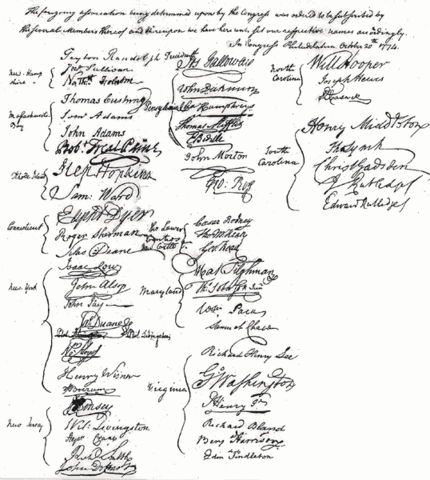 The foregoing association being determined upon by the Congress was ordered to be subscribed by
the several Members thereof and thereupon we have here unto set our respective names accordingly.
In Congress Philadelphia October 20th 1774.
Peyton Randolph President
New Hampshire
Jno Sullivan
Nathl Folsom
Massachusetts Bay
Thomas Cushing
Sam Adams
John Adams
Robt Treat Paine
Rhode Island
Step Hopkins
Sam: Ward
Connecticut
Elipht Dyer
Roger Sherman
Silas Deane
New York
Isaac Low
John Alsop
John Jay
Jas Duane
Phil Livingston
Henry Wisner
New Jersey
Wil: Livingston
Stepn Crane
Richd Smith
John De Hart
Pennsylvania
Jos Galloway
John Dickinson
Cha Humphreys
Thomas Mifflin
John Morton
Geo: Ross
The Lower Counties
New Castle
Caesar Rodney
Tho M:Kean
Geo: Read
Maryland
Mat Tilghman
Ths Johnson Junr
Wm Paca
Samuel Chase
Virginia
Richard Henry Lee
Go Washington
P Henry Jr
Richard Bland
Benj Harrison
Edm Pendleton
North Carolina
Will Hooper
Joseph Hewes
South Carolina
Henry Middleton
Tho Lynch
Christ Gadsden
J Rutledge
Edward Rutledge